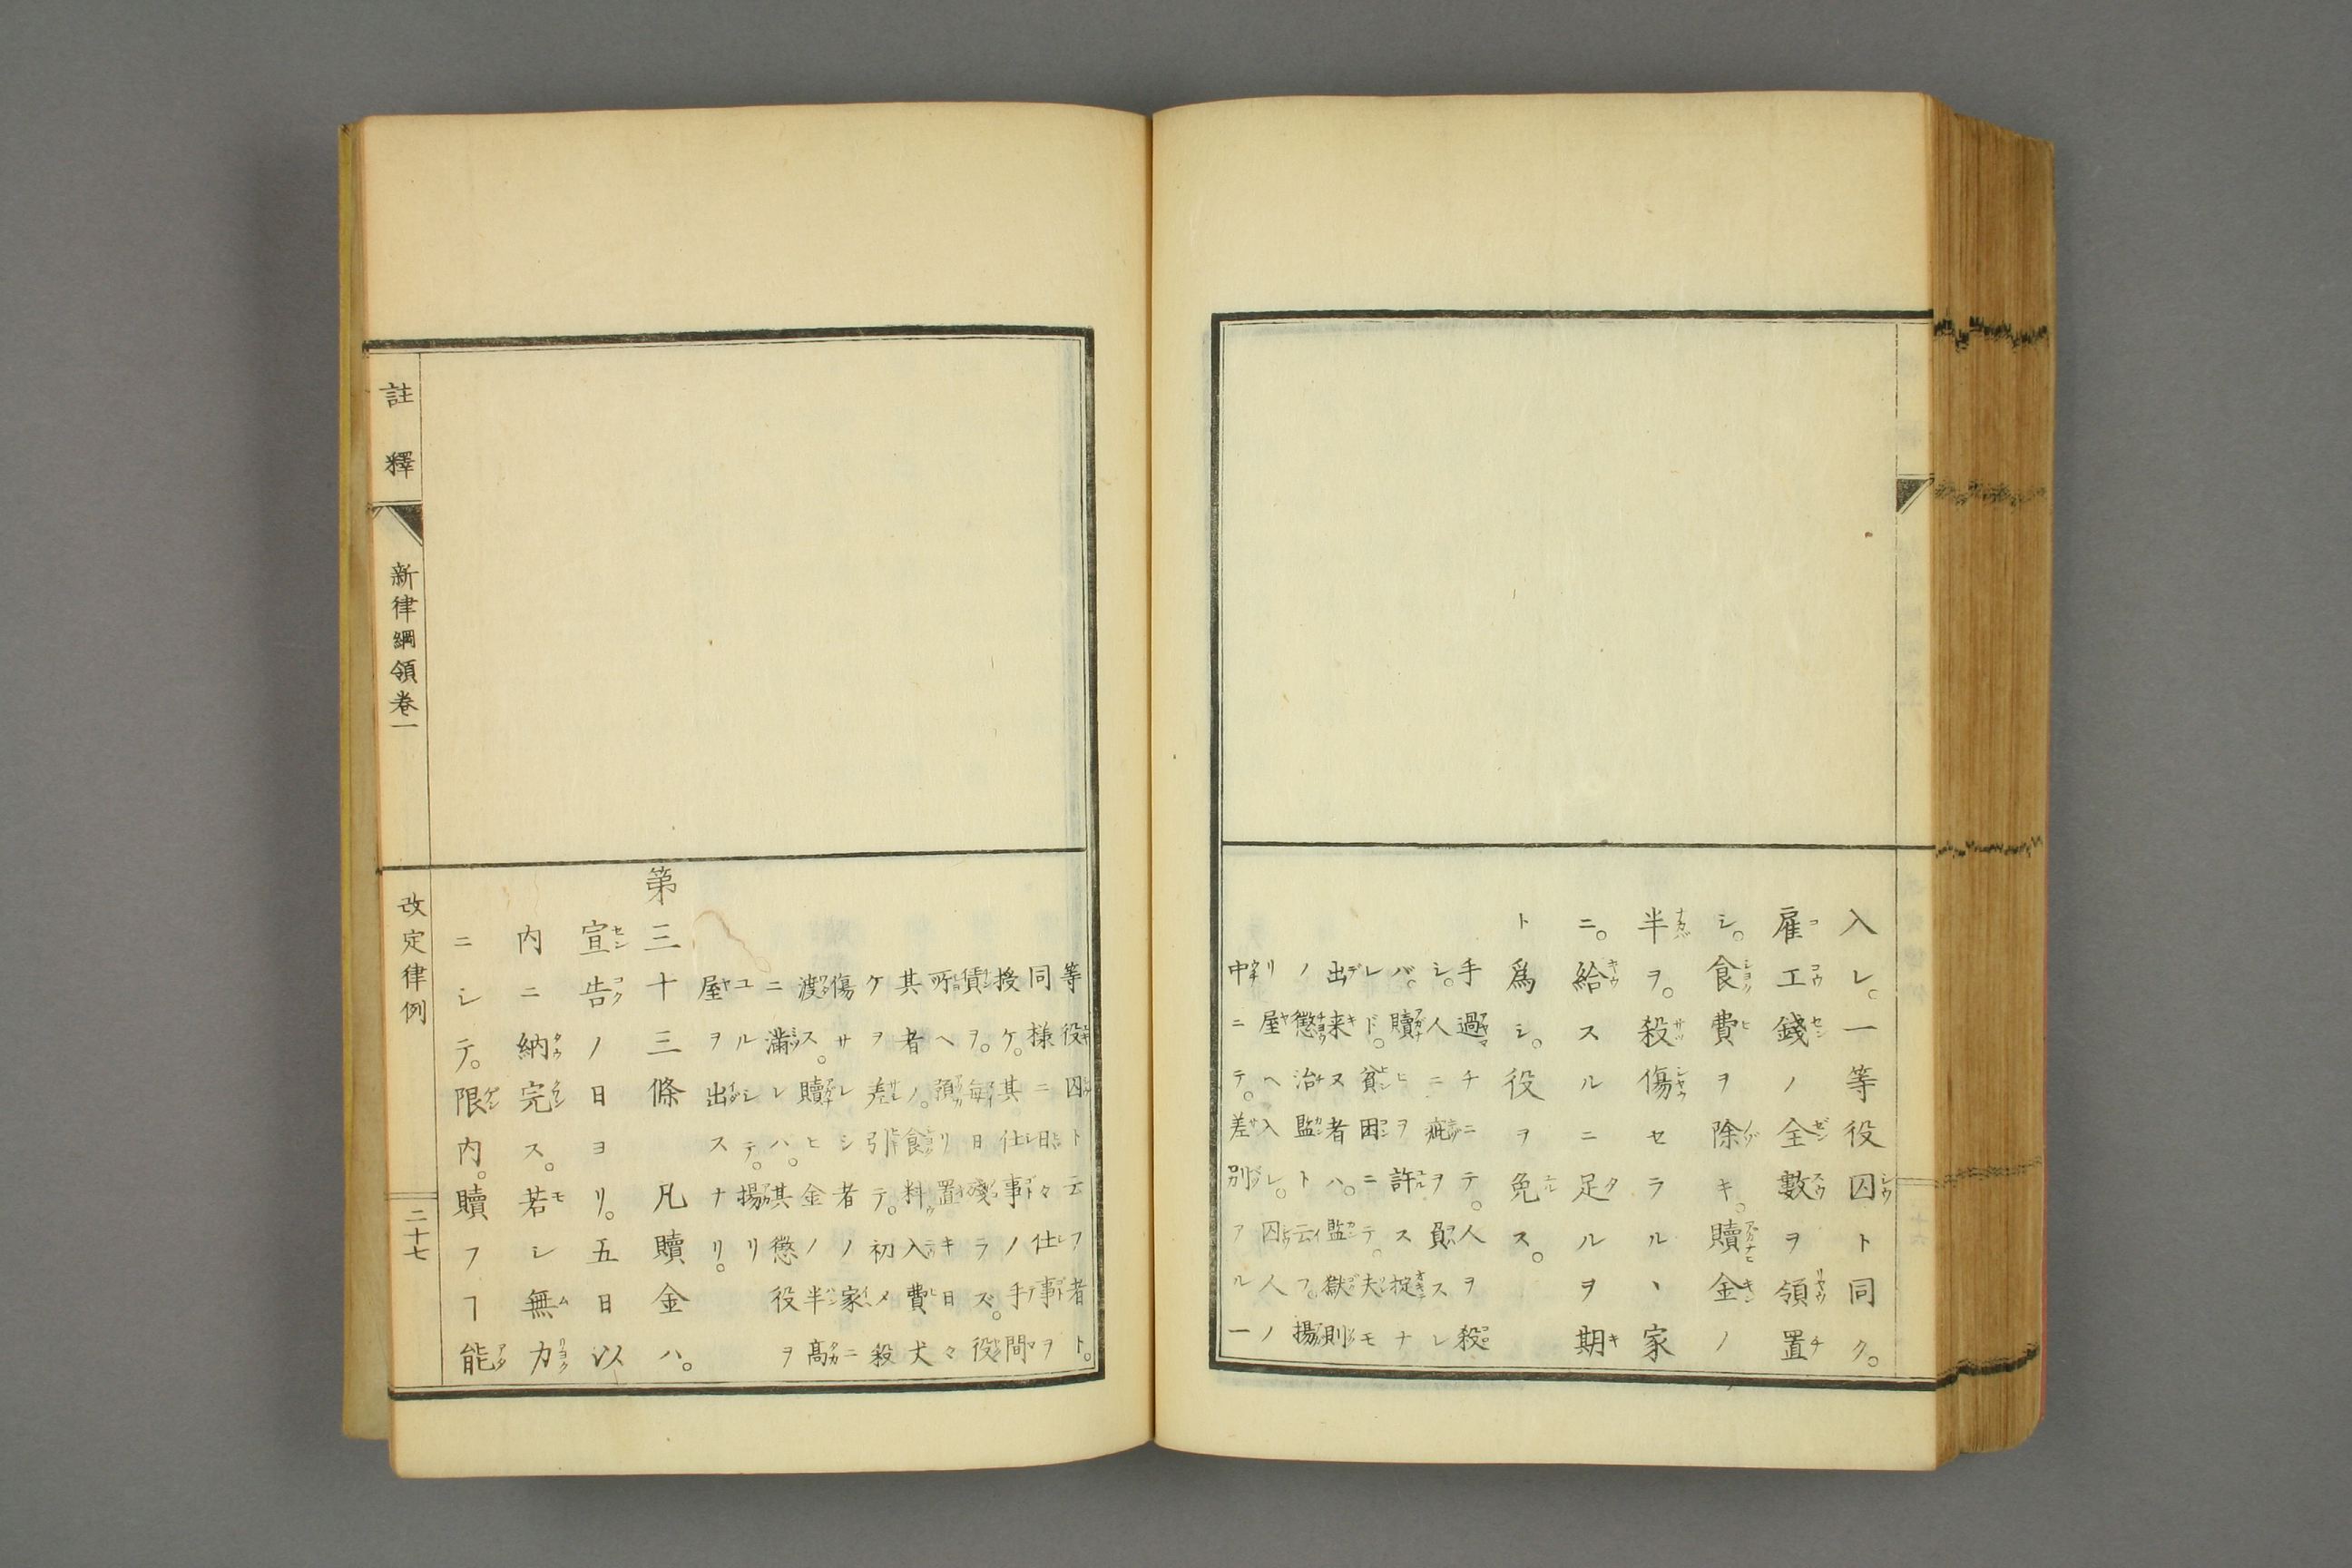 入レ。一等役囚ト同ク。
雇工錢ノ全數ヲ領置
シ。食費ヲ除キ。贖金ノ
半ヲ。殺傷セラル丶家
ニ。給スルニ足ルヲ期
ト爲シ。役ヲ免ス。
手過チニテ。人ヲ殺
シ。人ニ疵ヲ負スレ
バ。贖ヒヲ許ス掟ナ
レド。貧困ニテ。夫モ
出来ヌ者ハ。監獄則
ノ懲治監ト云フ。揚
リ屋ヘ入レ。囚人ノ
中ニテ。差別アル一
等役囚ト云フ者ト。
同様ニ日々仕事ヲ
授ケ。其仕事ノ手間
債ヲ。毎日殘ラズ。役
所ヘ預リ置キ日々
其者ノ。食料入費丈
ケヲ差引テ。初メ殺
傷サレシ者ノ家ニ
渡ス。贖ヒ金ノ半高
ニ滿レハ。其懲役ヲ
ユルシテ。揚リ
屋ヲ出スナリ。
第三十三條 凡贖金ハ。
宣告ノ日ヨリ。五日以
内ニ納完ス。若シ無力
ニシテ。限内。贖フヿ能
註釋 新律綱領卷一 改定律例 二十七